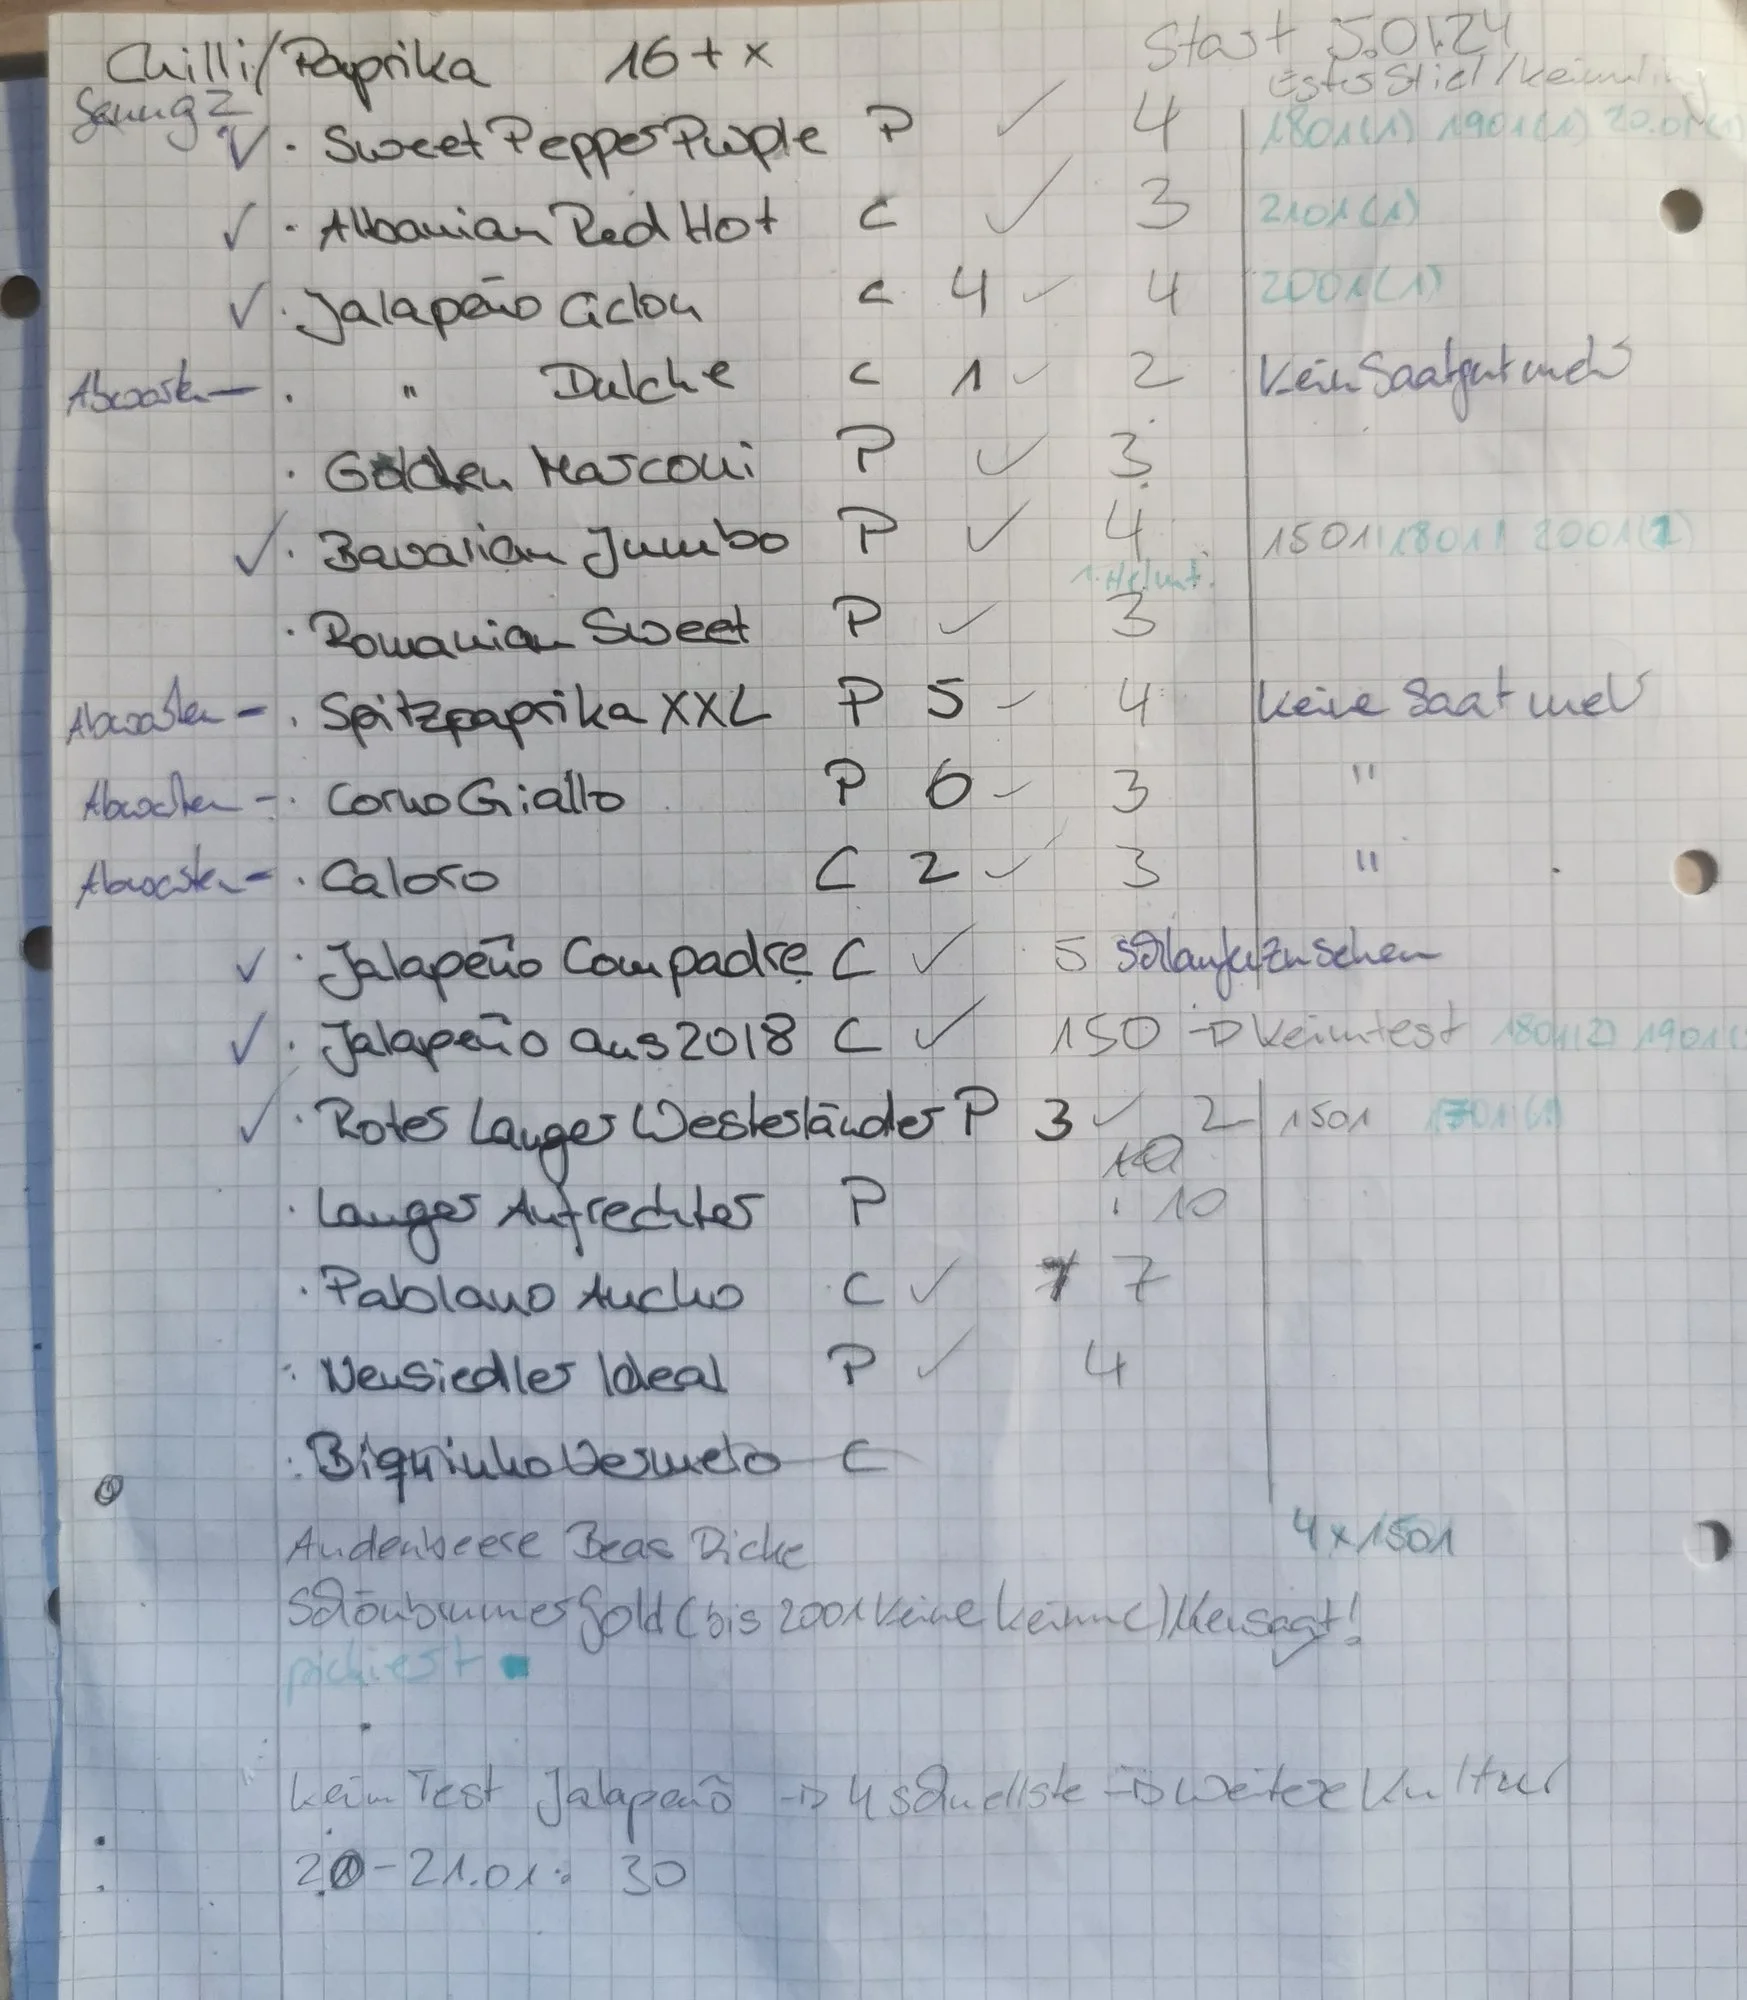 Chilli/Paprika 16 + x Start 5.01.24
Erster Stiel/Keimling
✓ · Sweet Pepper Purple P ✓ 4 1801(1) 1901(1) 20.01(1)
✓ · Albanian Red Hot C ✓ 3 2101(1)
✓ · Jalapeño Ciclon C 4 ✓ 4 2001(1)
Abwarten – · " Dulche C 1 ✓ 2 Kein Saatgut mehr
· Golden Marconi P ✓ 3
✓ · Bavarian Jumbo P ✓ 4 1501 1801 2001(2)
· Romanian Sweet P ✓ 3
Abwarten – · Spitzpaprika XXL P 5 ✓ 4 Keine Saat mehr
Abwarten – · Corno Giallo P 6 ✓ 3 "
Abwarten – · Caloro C 2 ✓ 3 "
✓ · Jalapeño Compadre C ✓ 5
✓ · Jalapeño aus 2018 C ✓ 150 → Keimtest 1801(2) 1901(
✓ · Roter Langer Westerländer P 3 ✓ 2 1501 1701(1)
· Langer Aufrechter P 10
· Pablano Ancho C ✓ 7
· Neusiedler Ideal P ✓ 4
· Biquinho Vermelo C
Andenbeere Beas Dicke 4 x 1501
Schönbrunner Gold (bis 2001 keine Keime) Neusaat!
pickiert
Keim Test Jalapeño → 4 schnellste → weitere Kultur
20-21.01: 30